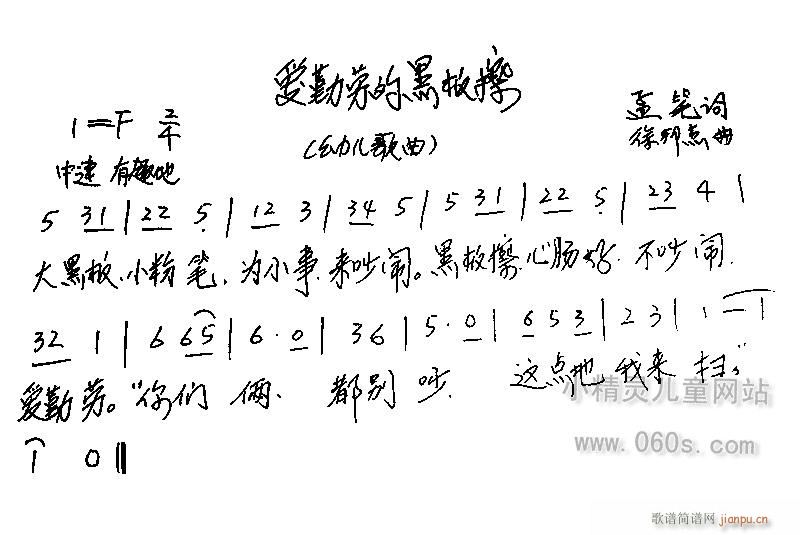 爱勤劳的黑板擦
1=F 2/4
(幼儿歌曲)
孟 笔 词
徐邦杰 曲
中速 有趣地
5 31 | 22 5 | 12 3 | 34 5 | 5 31 | 22 5 | 23 4 |
大黑板,小粉笔,为小事,来吵闹。黑板擦,心肠好,不吵闹,
32 1 | 6 65 | 6·0 | 36 | 5·0 | 653 | 23 | 1 — |
爱勤劳。“你们 俩、 都别 吵, 这点地 我来 扫。”
1 0 ‖
小精灵儿童网站
www.060s.com
歌谱简谱网
jianpu.cn